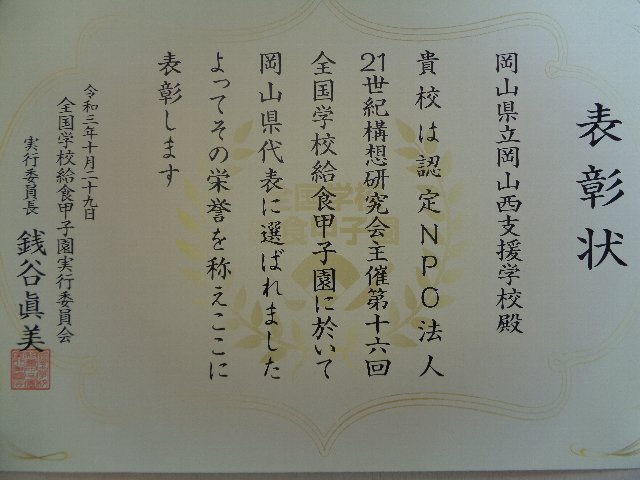 表彰状
岡山県立岡山西支援学校殿
貴校は認定NPO法人
21世紀構想研究会主催第十六回
全国学校給食甲子園に於いて
岡山県代表に選ばれました
よってその栄誉を称えここに
表彰します
令和三年十月二十九日
全国学校給食甲子園実行委員会
実行委員長 銭谷眞美
全国学校
給食甲子園